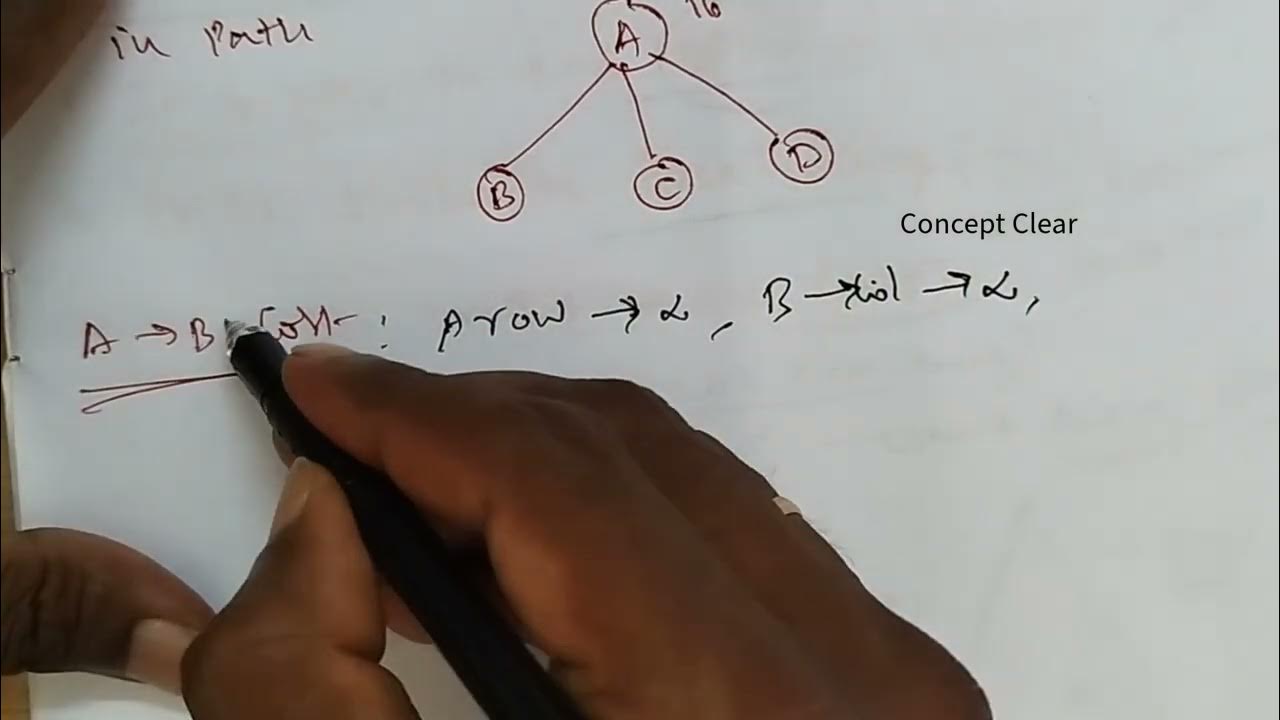 in Path
A 16
B C D
Concept Clear
A → B Cost : A row → ∞, B → Col → ∞,